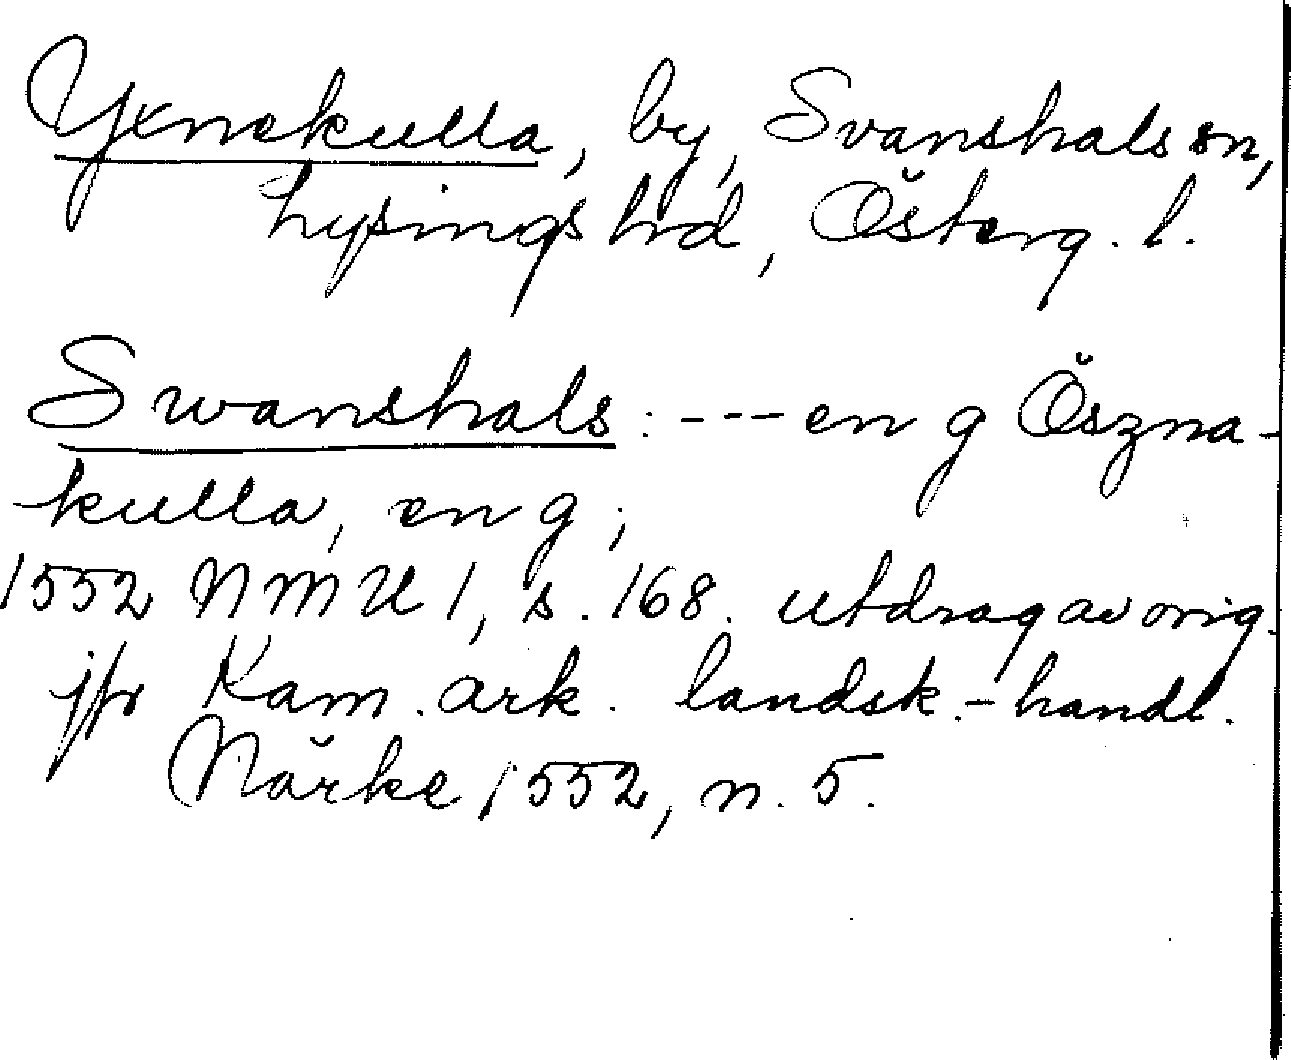 Yxnekulla, by, Svanshals sn,
Lysings hrd, Österg. l.
Swanshals: --- en g Öszna-
kulla, en g;
1552 NMU 1, s. 168. utdrag av orig.
jfr Kam. ark. landsk.-handl.
Närke 1552, n. 5.